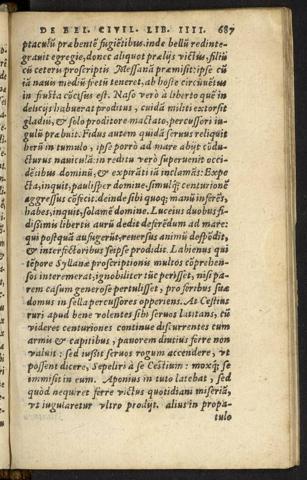 DE BEL. CIVIL. LIB. IIII. 687
ptaculū præbentē fugiētibus. inde bellū redinte-
grauit egregie, donec aliquot prælijs victus, filiū
cū ceteris proscriptis Messanā præmisit: ipse cū
iā nauis mediū fretū teneret, ab hoste circūuētus
in frusta cōcisus est. Naso verò à liberto quē in
delicijs habuerat proditus, cuidā militi extorsit
gladiū, & solo proditore mactato, percussori iu-
gulū præbuit. Fidus autem quidā seruus reliquit
herū in tumulo, ipse porrò ad mare abijt cōdu-
cturus nauiculā: in reditu verò superuenit occi-
dētibus dominū, & expirāti iā inclamās: Expe-
cta, inquit, paulisper domine, simulq; centurionē
aggressus cōfecit. deinde sibi quoq; manū inferēs,
habes, inquit, solamē domine. Luceius duobus fi-
dißimis libertis aurū dedit deferēdum ad mare:
qui postquā aufugerūt, reuersus animū despōdit,
& interfectoribus seipse prodidit. Labienus qui
tēpore Syllanæ proscriptionis multos cōprehen-
sos interemerat, ignobiliter tūc perisset, nisi pa-
rem casum generose pertulisset, pro foribus suæ
domus in sella percussores opperiens. At Cestius
ruri apud bene volentes sibi seruos latitans, cū
videret centuriones continue discurrentes cum
armis & capitibus, pauorem diutius ferre non
valuit: sed iußit seruos rogum accendere, vt
possent dicere, Sepeliri à se Cestium: moxq; se
immisit in eum. Aponius in tuto latebat, sed
quòd nequiret ferre victus quotidiani miseriā,
vt iugularetur vltro prodijt. alius in propa-
tulo